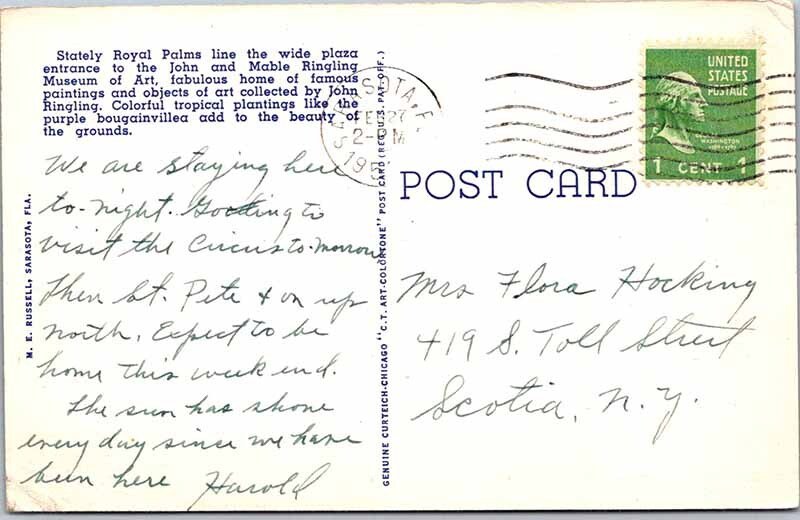 Stately Royal Palms line the wide plaza
entrance to the John and Mable Ringling
Museum of Art, fabulous home of famous
paintings and objects of art collected by John
Ringling. Colorful tropical plantings like the
purple bougainvillea add to the beauty of
the grounds.
We are staying here
to-night. to
visit the Circus to-morrow
then St. Pete & on up
north. Expect to be
home this week end.
The sun has shone
every day since we have
been here Harold
M. E. RUSSELL, SARASOTA, FLA.
GENUINE CURTEICH-CHICAGO "C.T. ART-COLORTONE" POST CARD (REG. U.S. PAT. OFF.)
SARASOTA, F
FEB 27
2-PM
195
UNITED
STATES
POSTAGE
WASHINGTON
1 CENT 1
POST CARD
Mrs Flora Hocking
419 S. Toll Street
Scotia, N.Y.